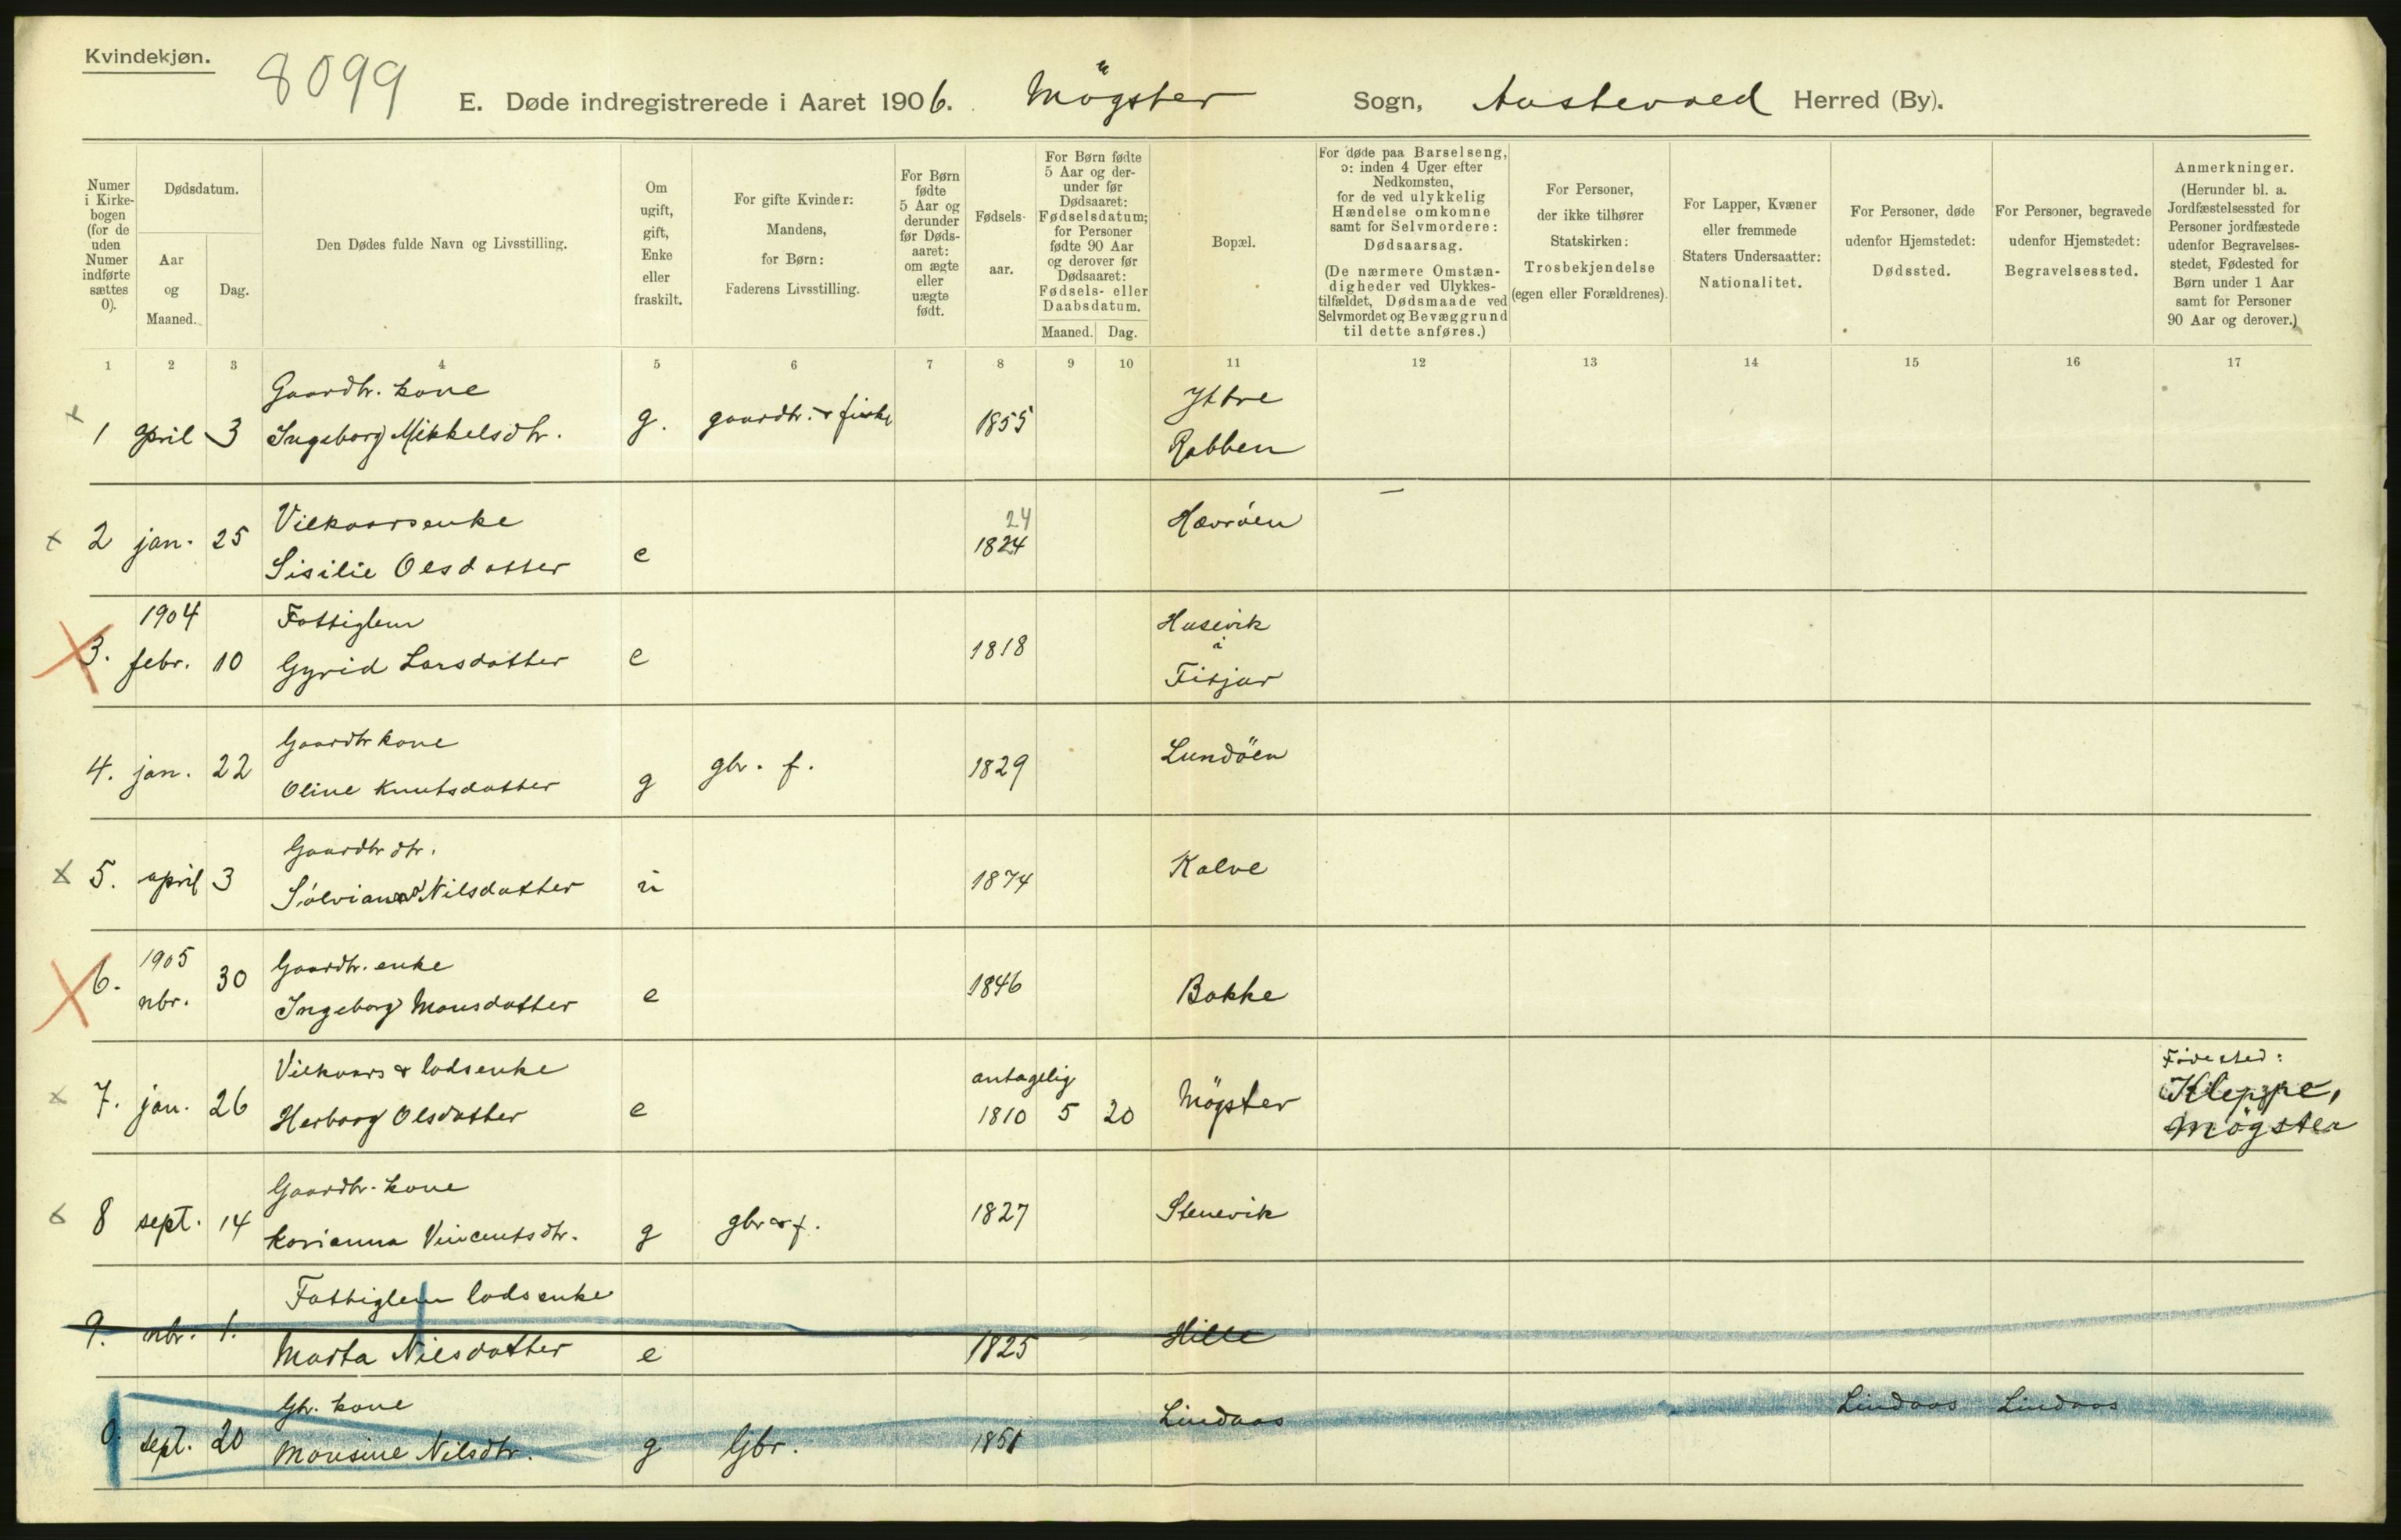 Kvindekjøn.
8099
E. Døde indregistrerede i Aaret 1906. Mögster Sogn, Austevoll Herred (By).
Numer i Kirkebogen (for de uden Numer indførte sættes 0).
Dødsdatum.
Aar og Maaned.
Dag.
Den Dødes fulde Navn og Livsstilling.
Om ugift, gift, Enke eller fraskilt.
For gifte Kvinder: Mandens, for Børn: Faderens Livsstilling.
For Børn fødte 5 Aar og derunder før Dødsaaret: om ægte eller uægte født.
Fødselsaar.
For Børn fødte 5 Aar og derunder før Dødsaaret: Fødselsdatum; for Personer fødte 90 Aar og derover før Dødsaaret: Fødsels- eller Daabsdatum.
Maaned. Dag.
Bopæl.
For døde paa Barselseng, ɔ: inden 4 Uger efter Nedkomsten, for de ved ulykkelig Hændelse omkomne samt for Selvmordere: Dødsaarsag.
(De nærmere Omstændigheder ved Ulykkestilfældet, Dødsmaade ved Selvmordet og Bevæggrund til dette anføres.)
For Personer, der ikke tilhører Statskirken: Trosbekjendelse (egen eller Forældrenes).
For Lapper, Kvæner eller fremmede Staters Undersaatter: Nationalitet.
For Personer, døde udenfor Hjemstedet: Dødssted.
For Personer, begravede udenfor Hjemstedet: Begravelsessted.
Anmerkninger.
(Herunder bl. a. Jordfæstelsessted for Personer jordfæstede udenfor Begravelsesstedet, Fødested for Børn under 1 Aar samt for Personer 90 Aar og derover.)
1 2 3 4 5 6 7 8 9 10 11 12 13 14 15 16 17
Gaardbr. kone Yttre
1 april 3 Ingeborg Mikkelsdtr. g. gaardbr. & fisker 1855 Rabben
Vilkaarsenke 24 Hævröen
2 jan. 25 Sisilie Olsdatter e 1824
1904 Fattiglem Husevik
3. febr. 10 Gyrid Larsdatter e 1818 i
Fitjar
Gaardbr kone Lundöen
4. jan. 22 Oline Knutsdatter g gbr. f. 1829
Gaardbr dtr. Kalve
5. april 3 Sölviana Nilsdatter ü 1874
1905 Gaardbr. enke
6. nbr. 30 Ingeborg Monsdatter e 1846 Bakke
Vilkaars & lodsenke antagelig Födested:
7. jan. 26 Herborg Olsdatter e 1810 5 20 Mögster Kleppe,
Mögster
Gaardbr. kone Stenevik
8 sept. 14 Karianna Vincentsdtr. g gbr & f. 1827
Fattiglem lodsenke
9. nbr. 1. Marta Nilsdatter e 1825 Hille
Gbr. kone Lindaas Lindaas Lindaas
0. sept. 20 Monsine Nilsdtr. g Gbr. 1851